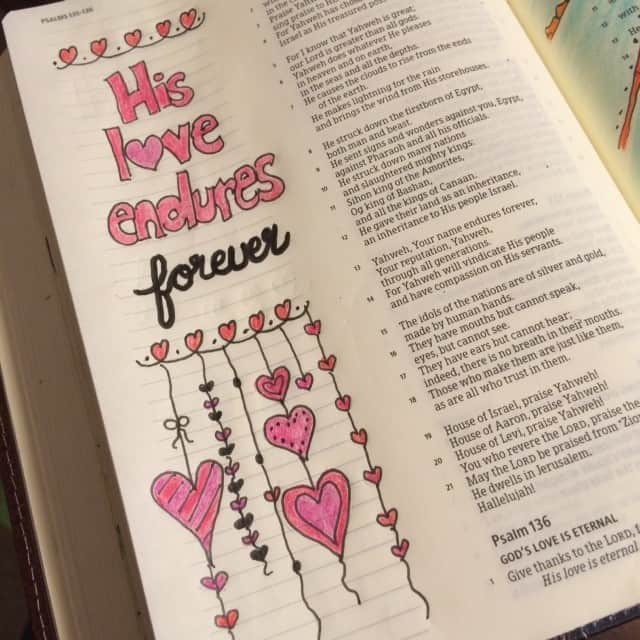 PSALMS 135-136
His
love
endures
forever
Israel as His treasured possession.
5 For I know that Yahweh is great;
our Lord is greater than all gods.
6 Yahweh does whatever He pleases
in heaven and on earth,
in the seas and all the depths.
7 He causes the clouds to rise from the ends
of the earth.
He makes lightning for the rain
and brings the wind from His storehouses.
8 He struck down the firstborn of Egypt,
both man and beast.
9 He sent signs and wonders against you, Egypt,
against Pharaoh and all his officials.
10 He struck down many nations
and slaughtered mighty kings:
11 Sihon king of the Amorites,
Og king of Bashan,
and all the kings of Canaan.
12 He gave their land as an inheritance,
an inheritance to His people Israel.
13 Yahweh, Your name endures forever,
Your reputation, Yahweh,
through all generations.
14 For Yahweh will vindicate His people
and have compassion on His servants.
15 The idols of the nations are of silver and gold,
made by human hands.
16 They have mouths but cannot speak,
eyes, but cannot see.
17 They have ears but cannot hear;
indeed, there is no breath in their mouths.
18 Those who make them are just like them,
as are all who trust in them.
19 House of Israel, praise Yahweh!
House of Aaron, praise Yahweh!
20 House of Levi, praise Yahweh!
You who revere the LORD, praise the
21 May the LORD be praised from Zion;
He dwells in Jerusalem.
Hallelujah!
Psalm 136
GOD'S LOVE IS ETERNAL
1 Give thanks to the LORD,
His love is eternal